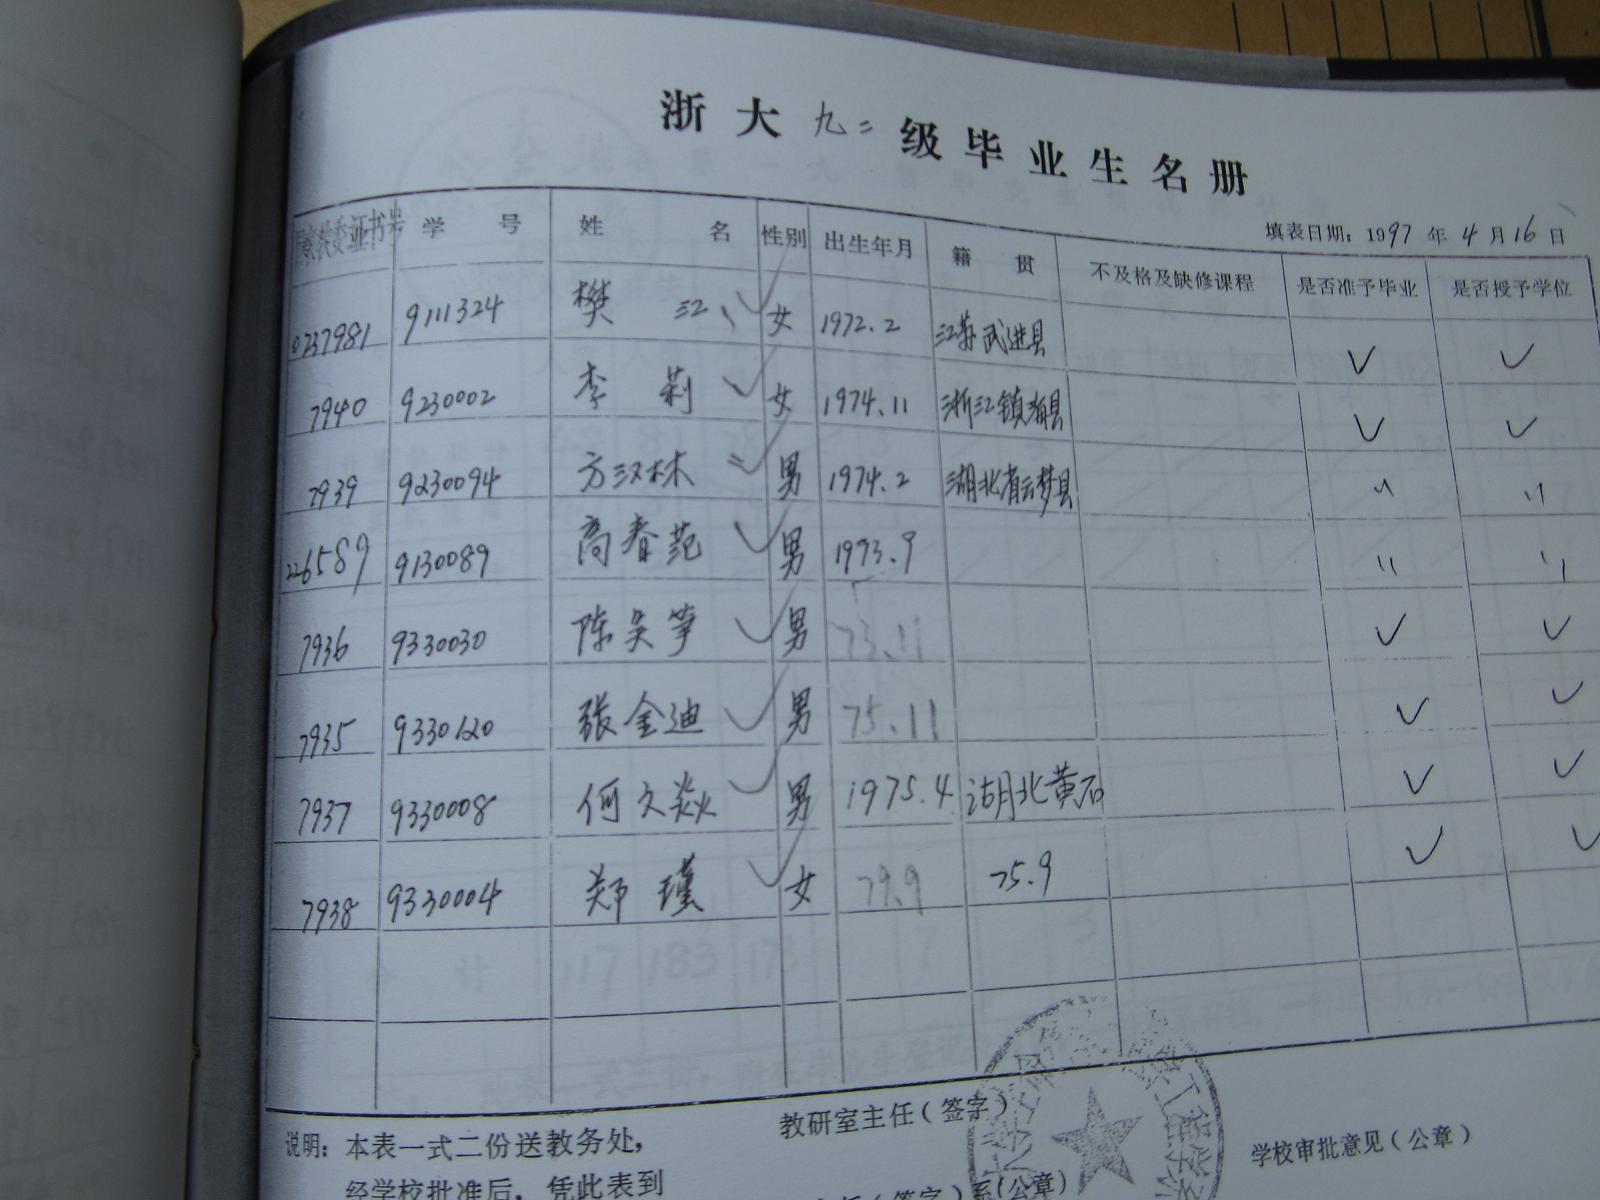 浙大九二级毕业生名册
填表日期：1997年4月16日
国家教委证书号 学号 姓名 性别 出生年月 籍贯 不及格及缺修课程 是否准予毕业 是否授予学位
0237981 9111324 樊江 女 1972.2 江苏武进县 ✓ ✓
7940 9230002 李莉 女 1974.11 浙江镇海县 ✓ ✓
7939 9230094 方汉林 男 1974.2 湖北省云梦县 〃 〃
226589 9130089 高春范 男 1973.9 〃 〃
7936 9330030 陈吴筝 男 73.11 ✓ ✓
7935 9330120 张金迪 男 75.11 ✓ ✓
7937 9330008 何文焱 男 1975.4 湖北黄石 ✓ ✓
7938 9330004 郑瑾 女 79.9 75.9 ✓ ✓
教研室主任（签字）
说明：本表一式二份送教务处，
学校审批意见（公章）
经学校批准后，凭此表到
（签字）系（公章）